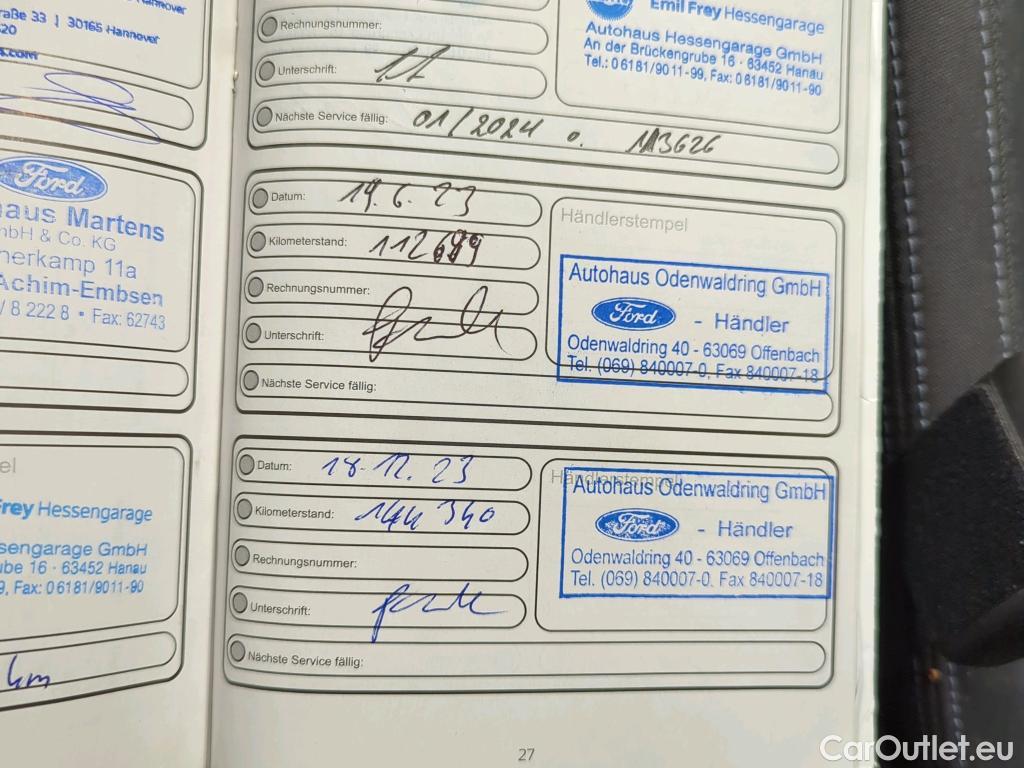 Hannover
raße 33 | 30165 Hannover
20
s.com
Ford
aus Martens
mbH & Co. KG
nerkamp 11a
Achim-Embsen
/ 8 222 8 • Fax: 62743
pel
Frey Hessengarage
sengarage GmbH
ube 16 · 63452 Hanau
9, Fax: 06181/9011-90
km
Rechnungsnummer:
Unterschrift:
Nächste Service fällig: 01/2024 o. 113626
Emil Frey Hessengarage
Autohaus Hessengarage GmbH
An der Brückengrube 16 · 63452 Hanau
Tel.: 06181/9011-99, Fax: 06181/9011-90
Datum: 19.6.23
Kilometerstand:
Rechnungsnummer:
Unterschrift:
Nächste Service fällig:
Händlerstempel
Autohaus Odenwaldring GmbH
Ford - Händler
Odenwaldring 40 - 63069 Offenbach
Tel. (069) 840007-0, Fax 840007-18
Datum: 18.12.23
Kilometerstand: 144 340
Rechnungsnummer:
Unterschrift:
Nächste Service fällig:
Händlerstempel
Autohaus Odenwaldring GmbH
Ford - Händler
Odenwaldring 40 - 63069 Offenbach
Tel. (069) 840007-0, Fax 840007-18
27
CarOutlet.eu